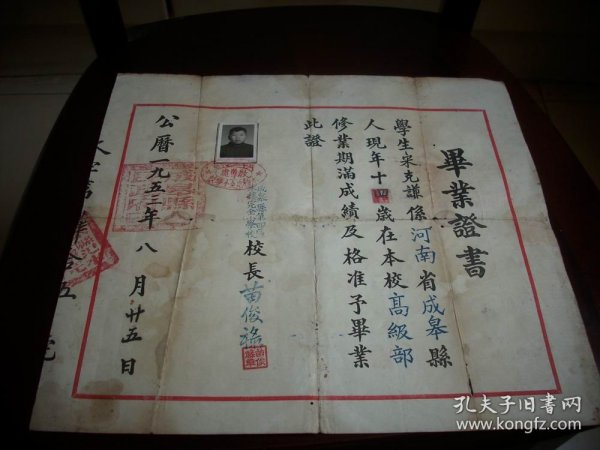 畢業證書
學生宋克謙係河南省成皋縣
人現年十四歲在本校高級部
修業期滿成績及格准予畢業
此證
校長苗俊
公曆一九五三年八月廿五日
孔夫子旧书网
www.kongfz.com